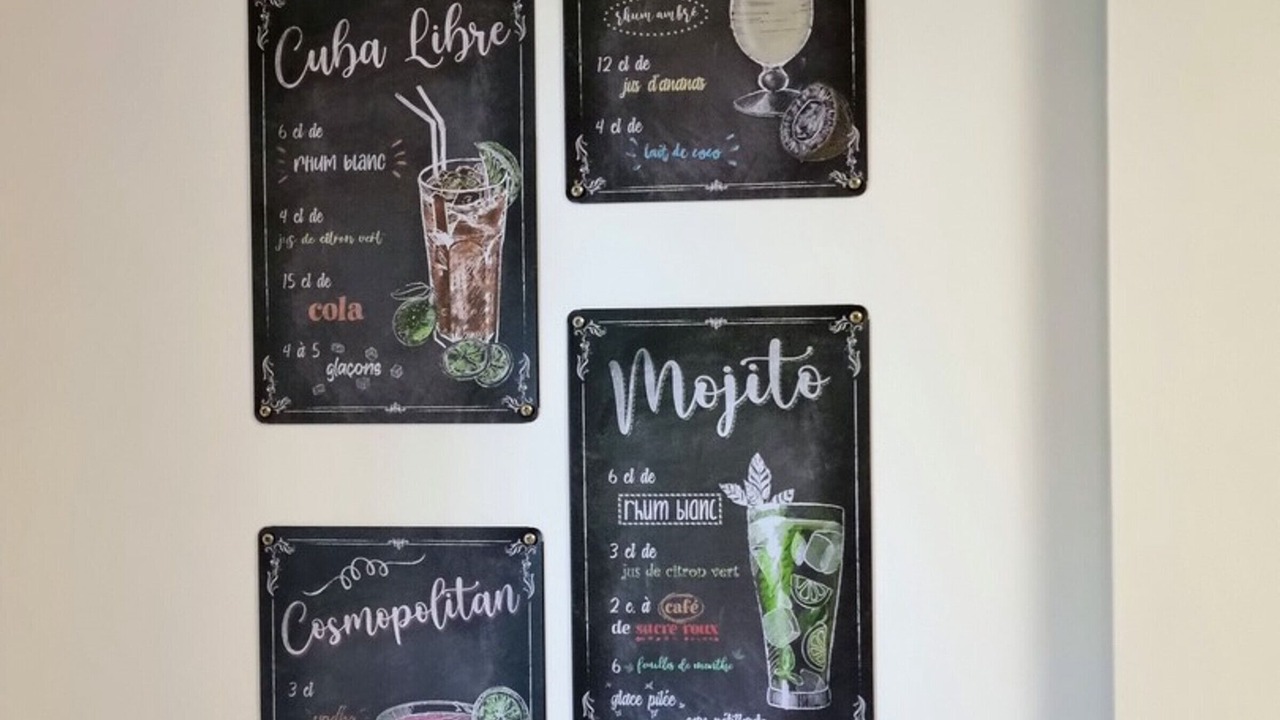 Cuba Libre
6 cl de
rhum blanc
4 cl de
jus de citron vert
15 cl de
cola
4 à 5
glaçons
rhum ambré
12 cl de
jus d'ananas
4 cl de
lait de coco
Cosmopolitan
3 cl
vodka
Mojito
6 cl de
rhum blanc
3 cl de
jus de citron vert
2 c. à café
de sucre roux
6 feuilles de menthe
glace pilée